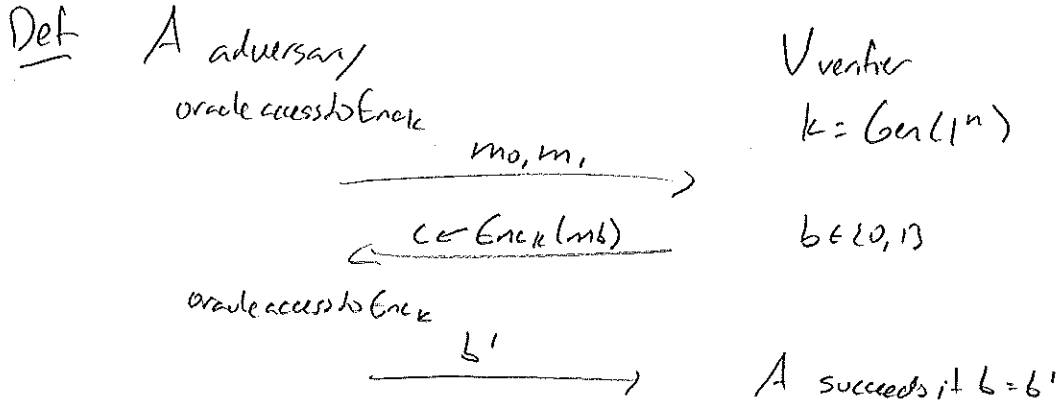 Def A adversary V verifier
oracle access to Enc_k k = Gen(1^n)
m_0, m_1
c ← Enc_k(m_b) b ∈ {0,1}
oracle access to Enc_k
b'
A succeeds if b = b'